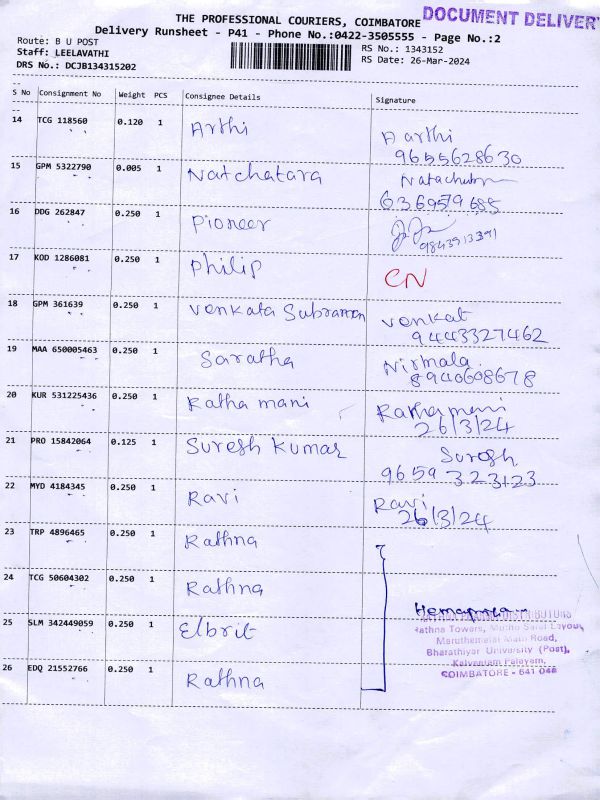 THE PROFESSIONAL COURIERS, COIMBATORE
DOCUMENT DELIVER
Delivery Runsheet - P41 - Phone No.:0422-3505555 - Page No.:2
Route: B U POST
Staff: LEELAVATHI
DRS No.: DCJB134315202
RS No.: 1343152
RS Date: 26-Mar-2024
S No Consignment No Weight PCS Consignee Details Signature
14 TCG 118560 0.120 1 Arthi Aarthi
9655628630
15 GPM 5322790 0.005 1 Natchatara
16 DDG 262847 0.250 1 Pioneer
9843913391
17 KOD 1286081 0.250 1 Philip CN
18 GPM 361639 0.250 1 Venkata Subraman Venkat
9443327462
19 MAA 650005463 0.250 1 Saratha Nirmala
8940608678
20 KUR 531225436 0.250 1 Ratha mani Rathamani
26/3/24
21 PRO 15842064 0.125 1 Suresh Kumar Suresh
9659 323123
22 MYD 4184345 0.250 1 Ravi Ravi
26/3/24
23 TRP 4896465 0.250 1 Rathna
24 TCG 50604302 0.250 1 Rathna
25 SLM 342449059 0.250 1 Elbrit
Rathna Towers, Layout,
Maruthamalai Main Road,
Bharathiyar University (Post),
Kalveeram Palayam,
COIMBATORE - 641 046
26 EDQ 21552766 0.250 1 Rathna